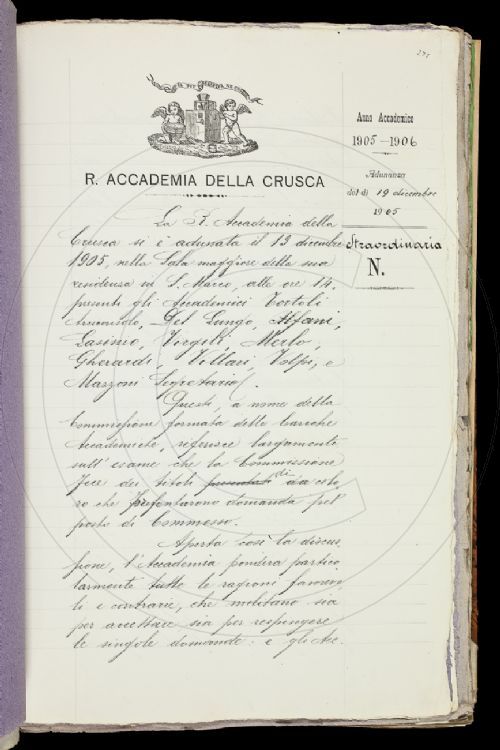 R. ACCADEMIA DELLA CRUSCA
Anno Accademico
1905-1906
Adunanza
del dì 19 dicembre
1905
Straordinaria
N.
La R. Accademia della
Crusca si è adunata il 19 dicembre
1905, nella Sala maggiore della sua
residenza in S. Marco, alle ore 14.
presenti gli Accademici Tortoli
Arciconsolo, Del Lungo, Alfani,
Lasinio, Vergili, Merlo,
Gherardi, Villari, Volpi, e
Mazzoni Segretario.
Questi, a nome della
Commissione formata delle Cariche
Accademiche, riferisce largamente
sull'esame che la Commissione
fece dei titoli presentati di colo
ro che presentarono domanda pel
posto di Commesso.
Aperta così la discus
sione, l'Accademia pondera partico
larmente tutte le ragioni favorevo
li e contrarie, che militano sia
per accettare sia per respingere
le singole domande: e gli Ac.